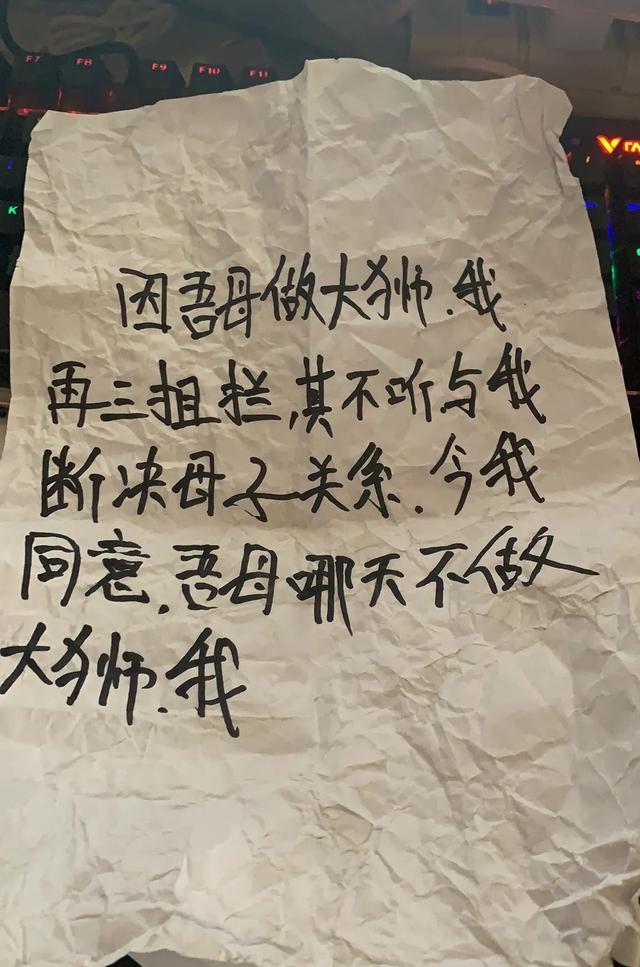 F7 F8 F9 F10 F11
K
因吾母做大狮.我
再三抯拦,其不听与我
断决母子关系.今我
同意.吾母哪天不做
大狮.我